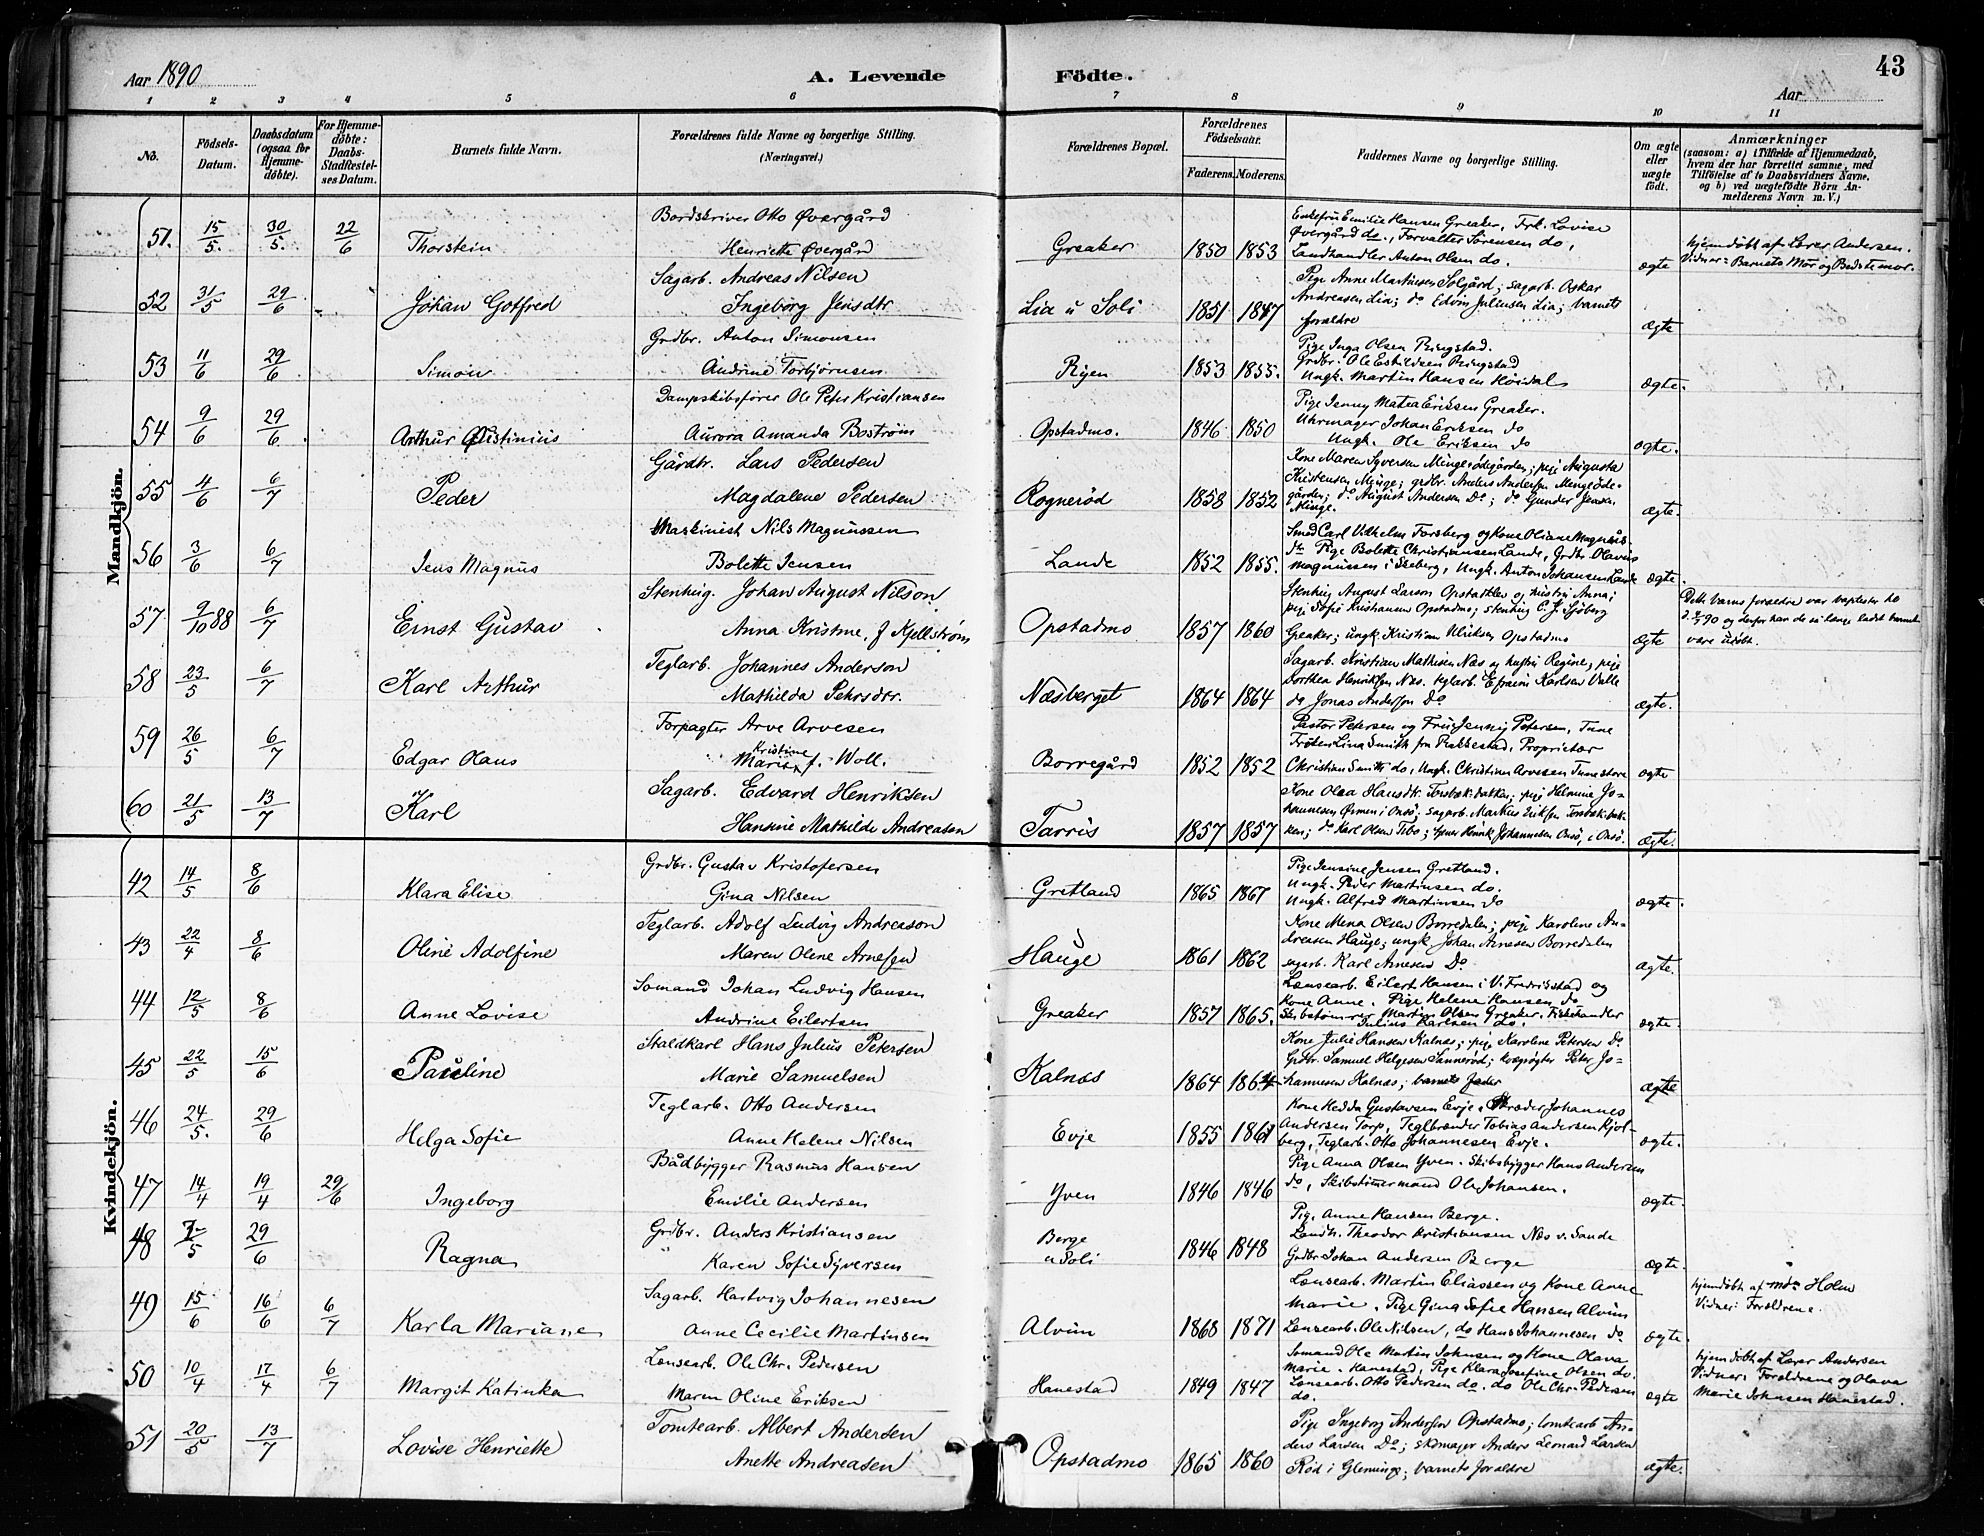 Aar 1890
A. Levende Födte.
Aar
43
1 2 3 4 5 6 7 8 9 10 11
No.
Födsels-Datum.
Daabsdatum (ogsaa for Hjemme-döbte).
For Hjemme-döbte: Daabs-Stadfæstelses Datum.
Barnets fulde Navn.
Forældrenes fulde Navne og borgerlige Stilling. (Næringsvei.)
Forældrenes Bopæl.
Forældrenes Födselsaar.
Faderens. Moderens.
Faddernes Navne og borgerlige Stilling.
Om ægte eller uægte födt.
Anmærkninger (saasom: a) i Tilfælde af Hjemmedaab, hvem der har forrettet samme, med Tilföielse af to Daabsvidners Navne, og b) ved uægtefödte Börn Anmelderens Navn m. V.)
Mandkjön.
51. 15/5. 30/5. 22/6 Thorstein
Bordskriver Otto Øvergård
Henriette Øvergård
Greaker 1850 1853
Enkefru Emilie Hansen Greaker, Frk. Lovise
Øvergård do., Forvalter Sörensen do,
Landhandler Anton Olsen do.
ægte
hjemdøbt af Lærer Andersen.
Vidner: Barnets Mor og Bedstemor.
52 31/5 29/6 Johan Gotfred
Sagarb. Andreas Nilsen
Ingeborg Jensdtr
Lia u Soli 1851 1847
Pige Anne Martinesen Solgård; sagarb. Oskar
Andreasen Lia; do Edvin Juliensen Lia; barnets
forældre
ægte
53 11/6 29/6 Simon
Grdbr. Anton Simonsen
Andrine Torbjörnsen
Ryen 1853 1855.
Pige Inga Olsen Ringstad.
Grdbr. Ole Eskildsen Ringstad
Ungk. Martin Hansen Hörsdal
ægte.
54 9/6 29/6 Arthur Qvistinius
Dampskibsförer Ole Peter Kristiansen
Aurora Amanda Boström
Opstadmo. 1846 1850
Pige Jenny Matea Eriksen Greaker.
Uhrmager Johan Eriksen do
Ungk. Ole Eriksen do
ægte.
55 4/6 6/7 Peder
Gårdbr. Lars Pedersen
Magdalene Pedersen
Rognerød 1858 1852
Kone Maren Syversen Mingeødegården; pige Augusta
Kristensen Minge; grdbr. Anders Andersen Minge Öde-
gården; do August Andersen Do; do Gunder Jensen
Minge.
ægte.
56 3/6 6/7 Jens Magnus
Maskinist Nils Magnussen
Bolette Jensen
Lande 1852 1855.
Smed Carl Vilhelm Forsberg og Kone Oliane Magnus-
do Pige Bolette Christiansen Lande, Grdbr. Olavus
Magnussen i Skeberg, Ungk. Anton Johansen Lande
ægte.
57 9/10 88 6/7 Ernst Gustav
Stenhug. Johan August Nilson
Anna Kristine, f Kjellström
Opstadmo 1857 1860
Stenhug August Larson Opstadtlen og hustru Anna;
pige Sofi Kristiansen Opstadmo; stenhug C. J. Sjöberg
Greaker; ungk. Kristian Ulriksen Opstadmo
ægte
Dette barns foreldre var baptister to
90 og derfor har de så længe ladet barnet
være udøbt.
58 23/5 6/7 Karl Arthur
Teglarb. Johannes Anderson
Mathilda Pehrsdtr.
Næsberget 1864 1864
Sagarb. Kristian Mathisen Næs og hustru Regine; pige
Dorthea Henriksen Næs. teglarb. Efraim Karlsen Valle
do Jonas Andersson Do
ægte.
59 26/5 6/7 Edgar Olaus
Forpagter Arve Arvesen
Marie Kristine f. Woll.
Borregård 1852 1852
Pastor Petersen og Fru Jenny Petersen, Tune
Fröken Lina Smith fra Rakkestad, Proprietær
Christian Smith do, Ungk. Christian Arvesen Tune store
ægte
60 21/5 13/7 Karl
Sagarb. Edvard Henriksen
Hansine Mathilde Andreasen
Tarris 1857 1857
Kone Olea Hansdtr. Torsbækbakken; pige Helmine Jo-
hannesen Örmen i Onsö; sagarb. Markus Eriksen Torsbækbak-
ken; do Karl Olsen Tebo; Henrik Johannesen Onsö, i Onsö.
ægte.
Kvindekjön.
42 14/5 8/6 Klara Elise
Grdbr. Gustav Kristofersen
Gina Nilsen
Gretland 1865 1867
Pige Jensine Jensen Gretland.
Ungk. Peder Martinsen do.
Ungk. Alfred Martinsen do
ægte.
43 22/4 8/6 Oline Adolfine
Teglarb. Adolf Ludvig Andreason
Maren Olene Arnesen
Hauge 1861 1862
Kone Mena Olsen Borredalen; pige Karoline An-
dreasen Hauge; ungk. Johan Arnesen Borredalen
sagarb. Karl Arnesen Do
ægte.
44 12/5 8/6 Anne Lovise
Sömand Johan Ludvig Hansen
Andrine Eilertsen
Greaker 1857 1865.
Lænsearb. Eilert Hansen i V. Fredrikstad og
Kone Anne. Pige Helene Hansen do
Skibstømrer Martin Olsen Greaker. Fiskehandler
Julius Karlsen do.
ægte.
45 22/5 15/6 Pauline
Staldkarl Hans Julius Petersen
Marie Samuelsen
Kalnæs 1864 1864
Kone Julie Hansen Kalnæs; pige Karoline Petersen Do
Grdbr. Samuel Helgesen Sannerød; kvægrøgter Peter Jo-
hannesen Kalnæs; barnets fader
ægte
46 24/5. 29/6 Helga Sofie
Teglarb. Otto Andersen
Anne Helene Nilsen
Evje 1855 1861
Kone Hedda Gustavsen Evje. Skræder Johannes
Andersen Torp, Teglbrænder Tobias Andersen Kjöl-
berg, Teglarb. Otto Johannesen Evje.
ægte.
47 14/4 19/4 29/6 Ingeborg
Bådbygger Rasmus Hansen
Emilie Andersen
Yven 1846 1846
Pige Anna Olsen Yven. Skibsbygger Hans Andersen
do, Skibstömmermand Ole Johansen.
ægte.
48 7/5 29/6 Ragna
Grdbr. Anders Kristiansen
Karen Sofie Syversen
Berge u Soli 1846 1848
Pige Anne Hansen Berge.
Landh. Theodor Kristiansen Næs v. Sande
Grdbr Johan Andersen Berge
ægte.
49 15/6 16/6 6/7 Karla Mariane
Sagarb. Hartvig Johannesen
Anne Cecilie Martinsen
Alvim 1868 1871
Lænsearb. Martin Eliassen og Kone Anne
Marie. Pige Gina Sofie Hansen Alvim
Lænsearb. Ole Nilsen, do Hans Johannesen do
ægte.
hjemdøbt af mdm Holm
Vidner: Forældrene.
50 10/4 17/4 6/7 Margit Katinka
Lænsearb. Ole Chr. Pedersen
Maren Oline Eriksen
Hanestad 1849 1847
Sömand Ole Martin Johnsen og Kone Olava
Marie. Hanestad, Pige Klara Josefine Olsen do.
Lænsearb. Otto Pedersen do. do Ole Chr. Pedersen
do.
ægte
hjemdøbt af Lærer Andersen
Vidner: Forældrene og Olava
Marie Johnsen Hanestad.
51 20/5 13/7 Lovise Henriette
Tomtearb. Albert Andersen
Anette Andreasen
Opstadmo 1865 1860
Pige Ingeborg Anderson Opstadmo; tomtearb An-
ders Larsen Do; skomager Anders Leonard Larsen
Röd i Glemminge; barnets forældre
ægte.